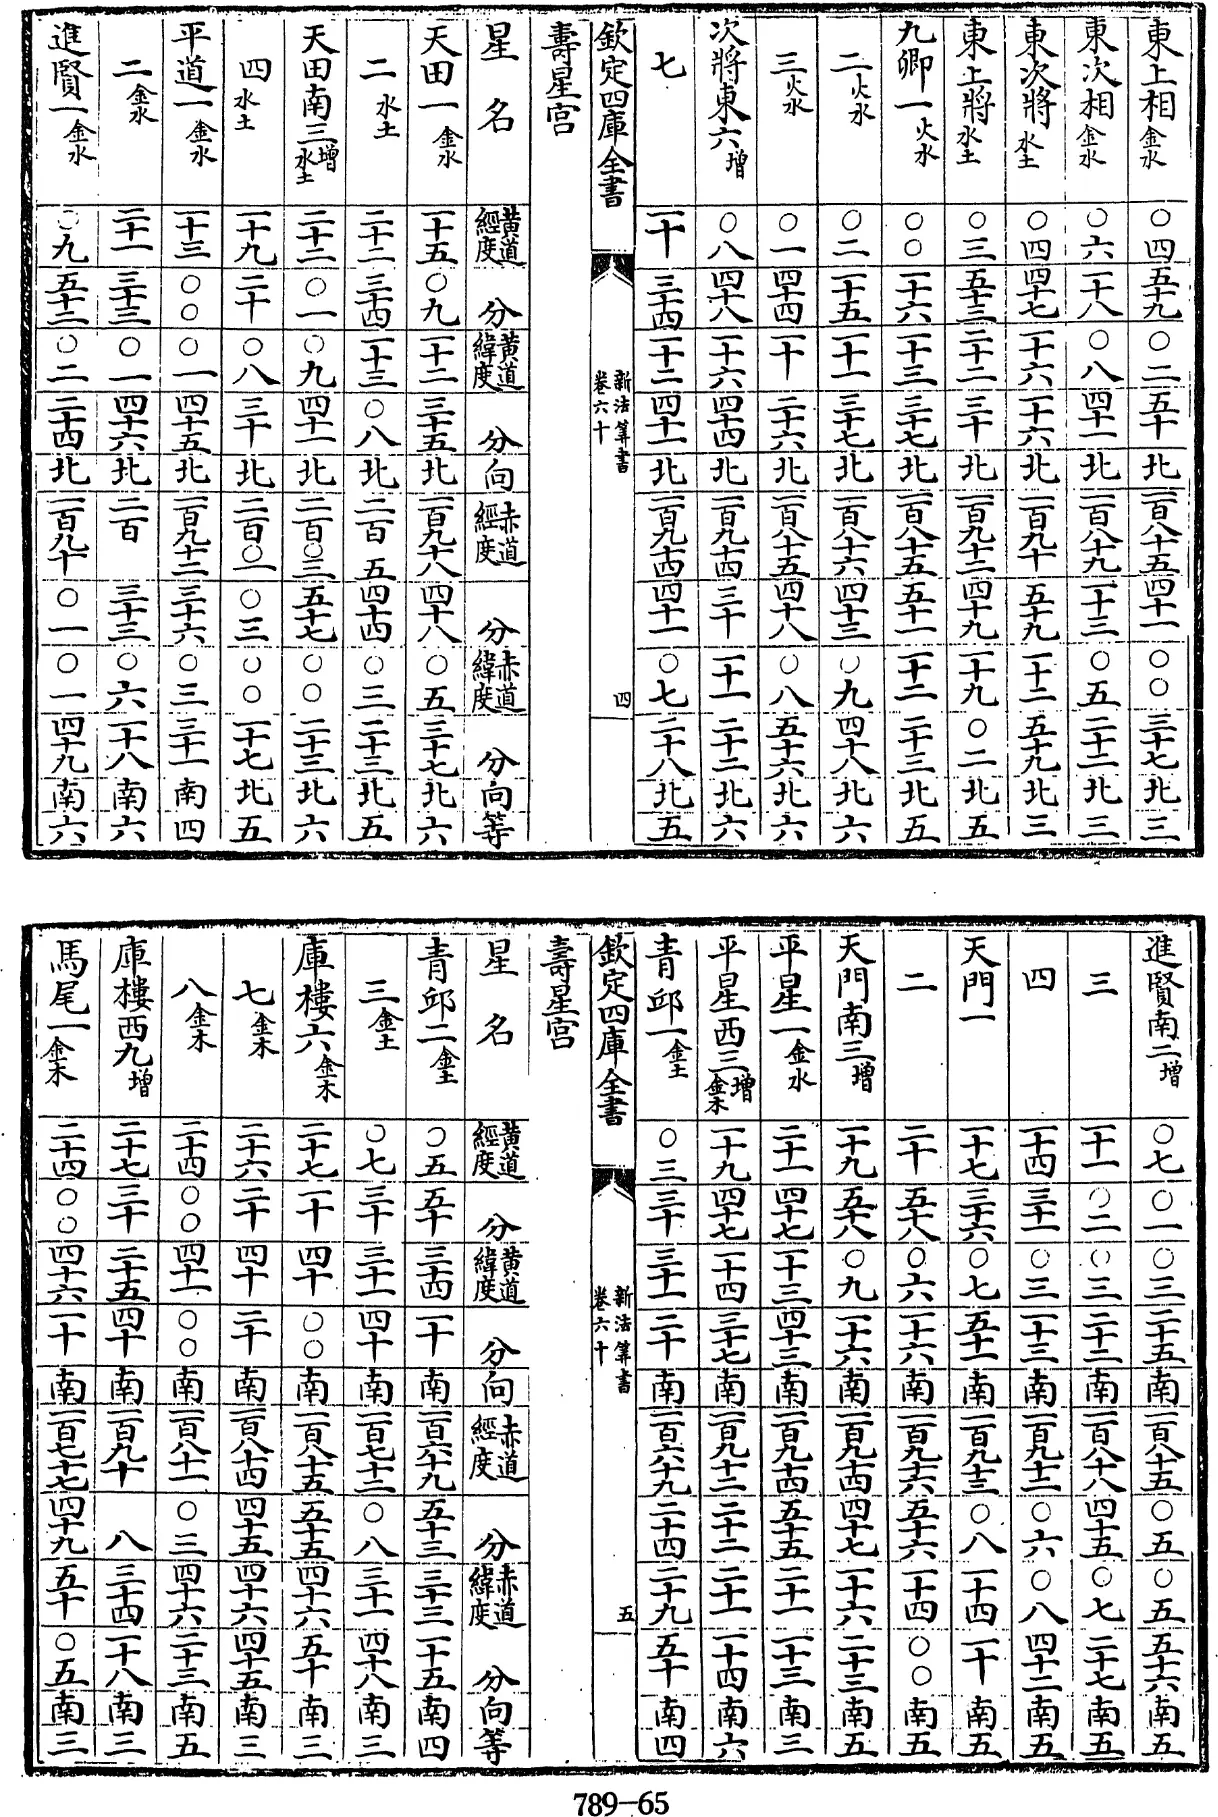 東上相 金水 〇四 五十九 〇二 五十 北 一百八十五 四十一 〇〇 三十七 北 三
東次相 金水 〇六 一十八 〇八 四十一 北 一百八十九 一十三 〇五 二十二 北 三
東次將 水土 〇四 四十七 一十六 一十六 北 一百九十 五十九 一十二 五十九 北 三
東上將 水土 〇三 五十三 二十二 三十 北 一百九十二 四十九 一十九 〇二 北 五
九卿一 火水 〇〇 一十六 一十三 三十七 北 一百八十五 五十一 一十二 二十三 北 五
二 火水 〇二 一十五 一十一 三十七 北 一百八十六 四十三 〇九 四十八 北 六
三 火水 〇一 四十四 一十 二十六 北 一百八十五 四十八 〇八 五十六 北 六
次將東六 增 〇八 四十八 一十六 四十四 北 一百九十四 三十 一十一 二十二 北 六
七 一十 三十四 一十二 四十一 北 一百九十四 四十一 〇七 二十八 北 五
欽定四庫全書 新法算書 卷六十 四
壽星宮
星名 黃道經度 分 黃道緯度 分 向 赤道經度 分 赤道緯度 分 向 等
天田一 金水 一十五 〇九 一十二 三十五 北 一百九十八 四十八 〇五 三十七 北 六
二 水土 二十二 三十四 一十三 〇八 北 二百五 四十四 〇三 二十三 北 五
天田南三 增 水土 二十二 〇一 〇九 四十一 北 二百〇三 五十七 〇〇 二十三 北 六
四 水土 一十九 二十 〇八 三十 北 二百〇一 〇三 〇〇 一十七 北 五
平道一 金水 一十三 〇〇 〇一 四十五 北 一百九十二 三十六 〇三 三十一 南 四
二 金水 二十一 三十三 〇一 四十六 北 二百 三十三 〇六 一十八 南 六
進賢一 金水 〇九 五十二 〇二 二十四 北 一百九十 〇一 〇一 四十九 南 六
進賢南二 增 〇七 〇一 〇三 二十五 南 一百八十五 〇五 〇五 五十六 南 五
三 一十一 〇二 〇三 二十二 南 一百八十八 四十五 〇七 二十七 南 五
四 一十四 三十一 〇三 一十三 南 一百九十二 〇六 〇八 四十二 南 五
天門一 一十七 三十六 〇七 五十一 南 一百九十三 〇八 一十四 一十 南 五
二 二十 五十八 〇六 一十六 南 一百九十六 五十六 一十四 〇〇 南 五
天門南三 增 一十九 五十八 〇九 一十六 南 一百九十四 四十七 一十六 二十三 南 五
平星一 金水 二十一 四十七 一十三 四十三 南 一百九十四 五十五 二十一 一十三 南 三
平星西三 增 金木 一十九 四十七 一十四 三十七 南 一百九十二 二十二 二十一 一十四 南 六
青邱一 金土 〇三 三十 三十一 二十 南 一百六十九 二十四 二十九 五十 南 四
欽定四庫全書 新法算書 卷六十 五
壽星宮
星名 黃道經度 分 黃道緯度 分 向 赤道經度 分 赤道緯度 分 向 等
青邱二 金土 〇五 五十 三十四 一十 南 一百六十九 五十三 三十三 一十五 南 四
三 金土 〇七 三十 三十一 四十 南 一百七十二 〇八 三十一 四十八 南 三
庫樓六 金木 二十七 一十 四十 〇〇 南 一百八十五 五十五 四十六 五十 南 三
七 金木 二十六 二十 四十 二十 南 一百八十四 四十五 四十六 四十五 南 三
八 金木 二十四 〇〇 四十一 〇〇 南 一百八十一 〇三 四十六 二十三 南 五
庫樓西九 增 二十七 三十 二十五 四十 南 一百九十 八 三十四 一十八 南 三
馬尾一 金木 二十四 〇〇 四十六 一十 南 一百七十七 四十九 五十 〇五 南 三
789—65